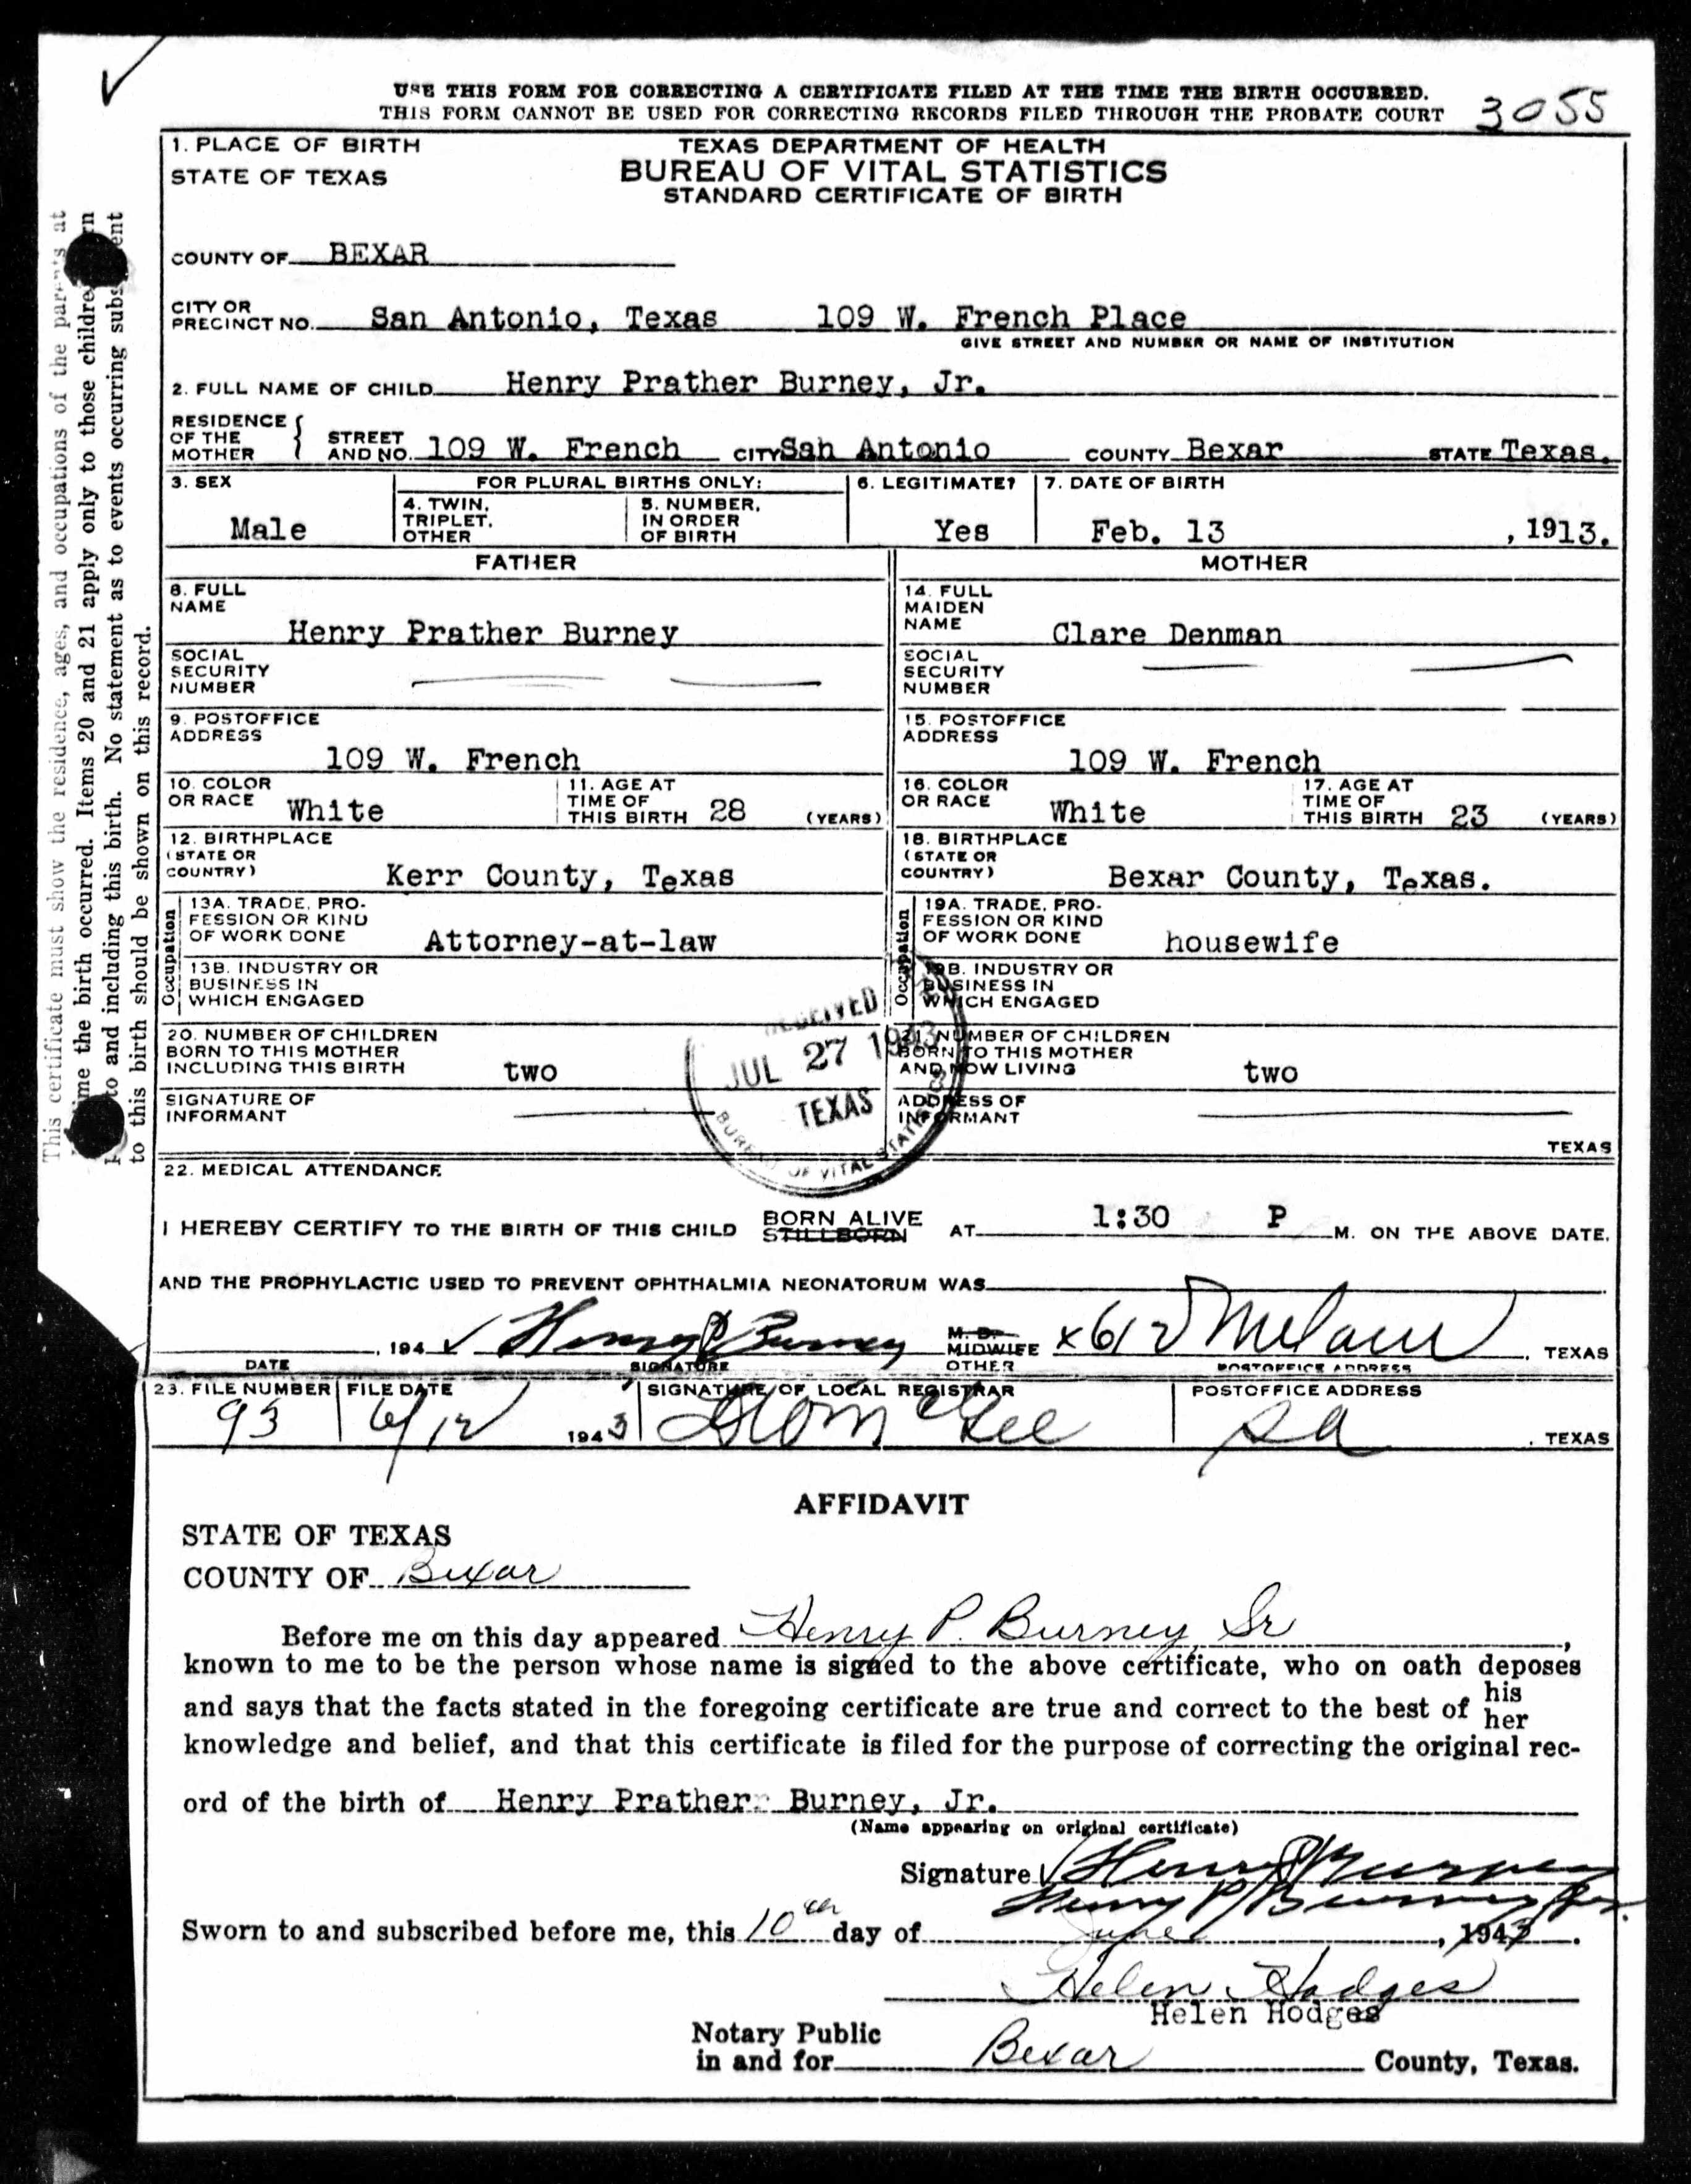 USE THIS FORM FOR CORRECTING A CERTIFICATE FILED AT THE TIME THE BIRTH OCCURRED.
THIS FORM CANNOT BE USED FOR CORRECTING RECORDS FILED THROUGH THE PROBATE COURT
3055
1. PLACE OF BIRTH
STATE OF TEXAS
TEXAS DEPARTMENT OF HEALTH
BUREAU OF VITAL STATISTICS
STANDARD CERTIFICATE OF BIRTH
COUNTY OF BEXAR
CITY OR PRECINCT NO. San Antonio, Texas 109 W. French Place
GIVE STREET AND NUMBER OR NAME OF INSTITUTION
2. FULL NAME OF CHILD Henry Prather Burney, Jr.
RESIDENCE OF THE MOTHER { STREET AND NO. 109 W. French CITY San Antonio COUNTY Bexar STATE Texas.
3. SEX
Male
FOR PLURAL BIRTHS ONLY:
4. TWIN, TRIPLET, OTHER
5. NUMBER, IN ORDER OF BIRTH
6. LEGITIMATE?
Yes
7. DATE OF BIRTH
Feb. 13, 1913.
FATHER
8. FULL NAME
Henry Prather Burney
SOCIAL SECURITY NUMBER
9. POSTOFFICE ADDRESS
109 W. French
10. COLOR OR RACE White
11. AGE AT TIME OF THIS BIRTH 28 (YEARS)
12. BIRTHPLACE (STATE OR COUNTRY) Kerr County, Texas
Occupation
13A. TRADE, PROFESSION OR KIND OF WORK DONE Attorney-at-law
13B. INDUSTRY OR BUSINESS IN WHICH ENGAGED
MOTHER
14. FULL MAIDEN NAME
Clare Denman
SOCIAL SECURITY NUMBER
15. POSTOFFICE ADDRESS
109 W. French
16. COLOR OR RACE White
17. AGE AT TIME OF THIS BIRTH 23 (YEARS)
18. BIRTHPLACE (STATE OR COUNTRY) Bexar County, Texas.
Occupation
19A. TRADE, PROFESSION OR KIND OF WORK DONE housewife
19B. INDUSTRY OR BUSINESS IN WHICH ENGAGED
20. NUMBER OF CHILDREN BORN TO THIS MOTHER INCLUDING THIS BIRTH two
21. NUMBER OF CHILDREN BORN TO THIS MOTHER AND NOW LIVING two
RECEIVED
JUL 27 1943
TEXAS
BUREAU OF VITAL STATISTICS
SIGNATURE OF INFORMANT
ADDRESS OF INFORMANT
TEXAS
22. MEDICAL ATTENDANCE
I HEREBY CERTIFY TO THE BIRTH OF THIS CHILD BORN ALIVE STILLBORN AT 1:30 P M. ON THE ABOVE DATE,
AND THE PROPHYLACTIC USED TO PREVENT OPHTHALMIA NEONATORUM WAS
, 194 Henry P Burney M. D. MIDWIFE OTHER x612 , TEXAS
DATE SIGNATURE POSTOFFICE ADDRESS
23. FILE NUMBER FILE DATE SIGNATURE OF LOCAL REGISTRAR POSTOFFICE ADDRESS
93 6/12 1943 SA , TEXAS
AFFIDAVIT
STATE OF TEXAS
COUNTY OF Bexar
Before me on this day appeared Henry P. Burney, Sr,
known to me to be the person whose name is signed to the above certificate, who on oath deposes
and says that the facts stated in the foregoing certificate are true and correct to the best of his her
knowledge and belief, and that this certificate is filed for the purpose of correcting the original rec-
ord of the birth of Henry Prather Burney, Jr.
(Name appearing on original certificate)
Signature Henry P Burney
Henry P Burney Jr.
Sworn to and subscribed before me, this 10th day of June, 1943.
Helen Hodges
Helen Hodges
Notary Public in and for Bexar County, Texas.
This certificate must show the residence, ages, and occupations of the parents at
time the birth occurred. Items 20 and 21 apply only to those children
to and including this birth. No statement as to events occurring subsequent
to this birth should be shown on this record.